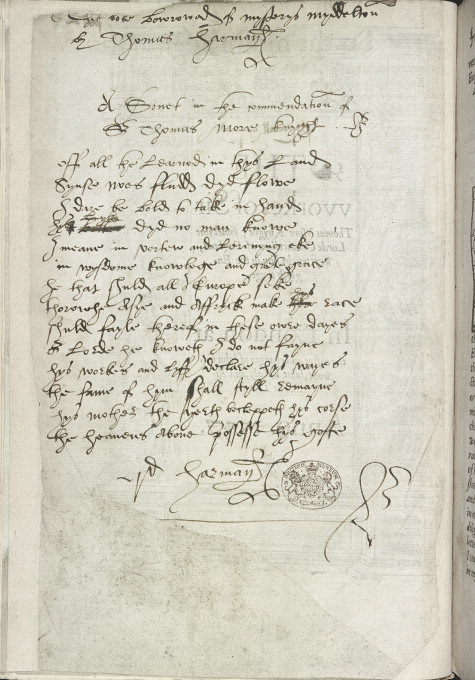 boke borrowed of mystorys Myddelton
by Thomas Harman
A Sonet in the commendation of
Sr Thomas More knyght
off all the Learned in thys Land
Synse woes fludd dyd flowe
I dare be bold to take in hand
lyke dyd no man knowe
I meane in vertew and Lerenyng eke
in wysdome knowlege and grace
he that shuld all Ewrope seke
thorowhe Asye and Affryck make hys race
shuld fayle therof in these owre dayes
Lorde he knoweth I do not fayne
hys workes and Lyff declare hys wayes
the fame of hym shall styll remayne
hys mother the yerth becleppeth hys corse
the heavens above possesse hys goste
qd Harman